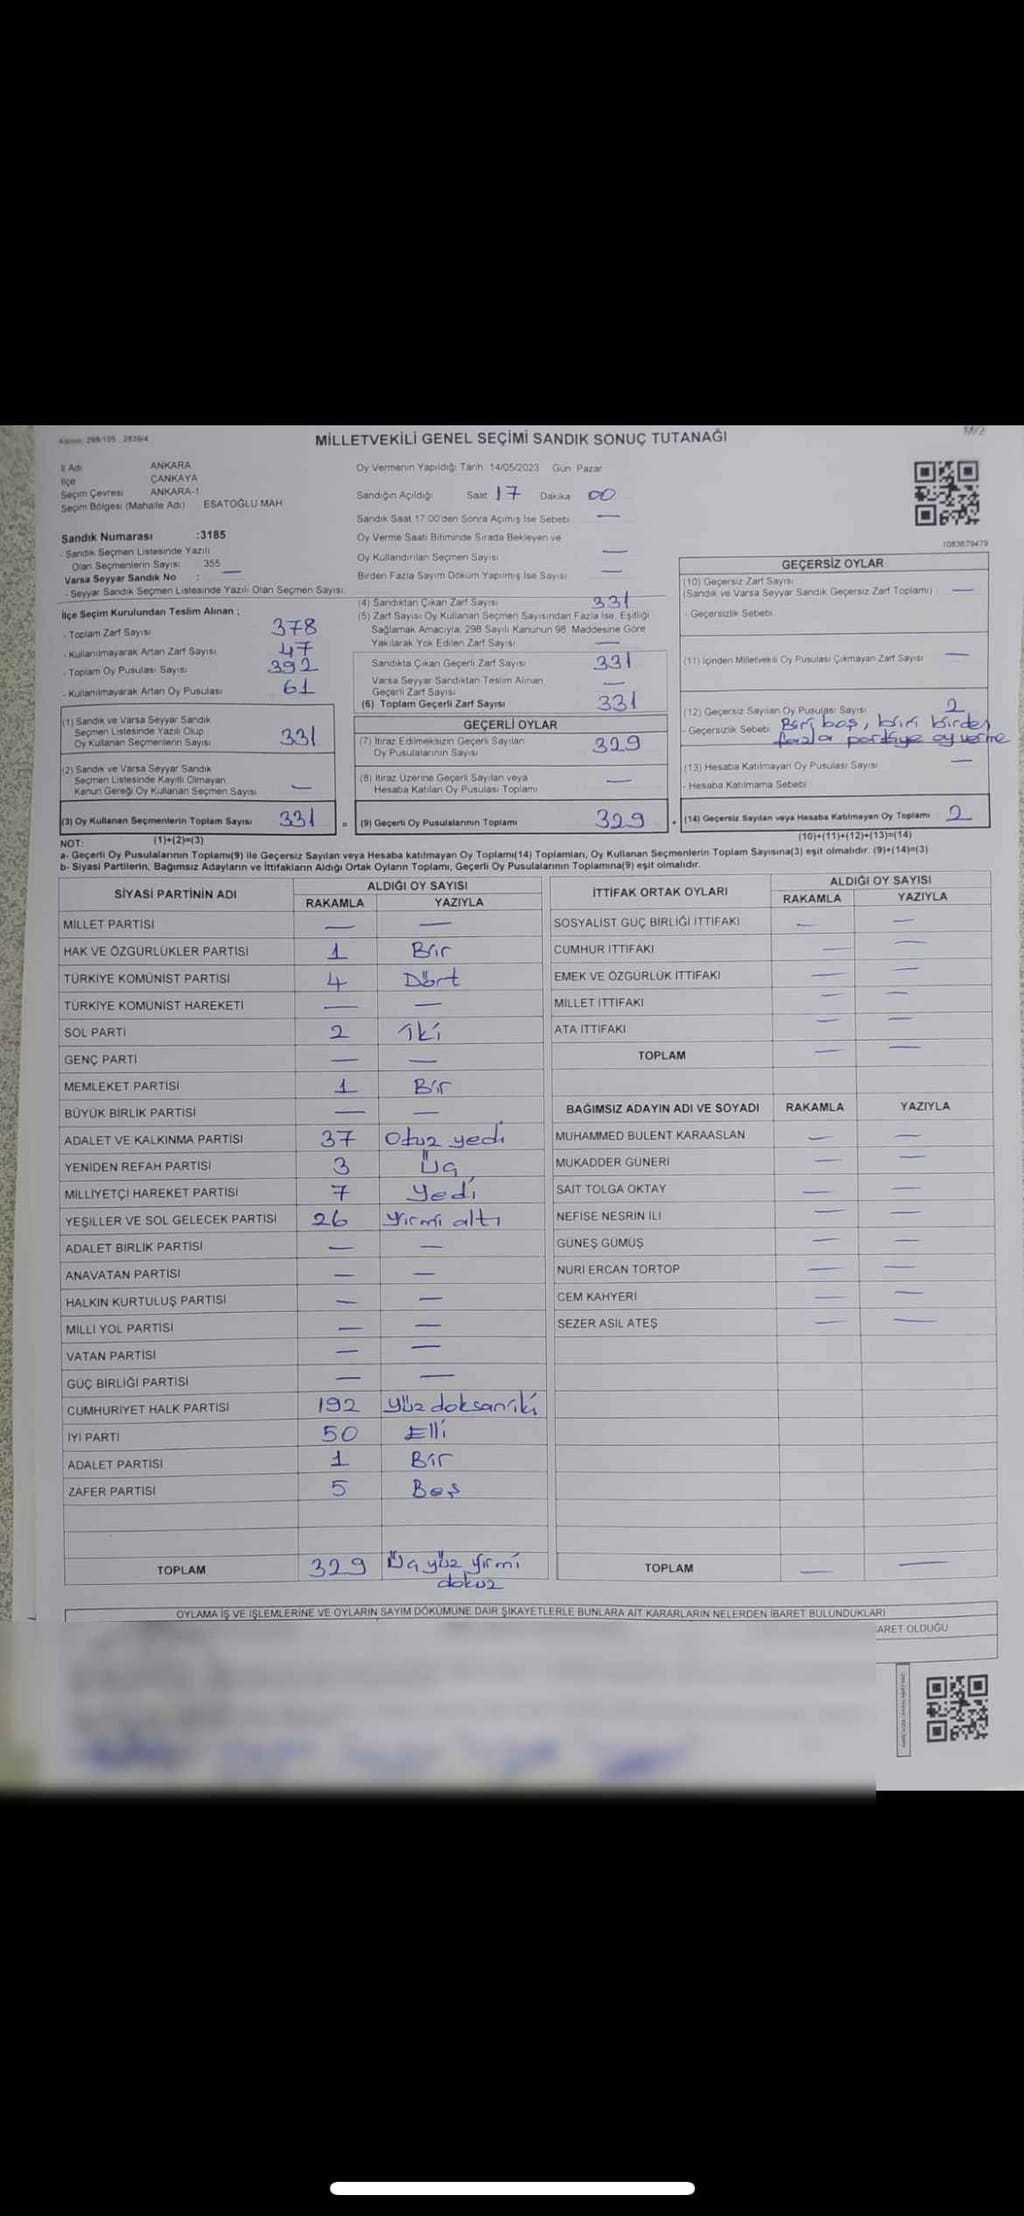 Kanun: 298/105 . 2839/4
M/2
MİLLETVEKİLİ GENEL SEÇİMİ SANDIK SONUÇ TUTANAĞI
İl Adı ANKARA
İlçe ÇANKAYA
Seçim Çevresi ANKARA-1
Seçim Bölgesi (Mahalle Adı) ESATOĞLU MAH
Sandık Numarası :3185
- Sandık Seçmen Listesinde Yazılı
Olan Seçmenlerin Sayısı 355
Varsa Seyyar Sandık No : —
- Seyyar Sandık Seçmen Listesinde Yazılı Olan Seçmen Sayısı
İlçe Seçim Kurulundan Teslim Alınan ;
- Toplam Zarf Sayısı 378
- Kullanılmayarak Artan Zarf Sayısı 47
- Toplam Oy Pusulası Sayısı 392
- Kullanılmayarak Artan Oy Pusulası 61
(1) Sandık ve Varsa Seyyar Sandık
Seçmen Listesinde Yazılı Olup
Oy Kullanan Seçmenlerin Sayısı 331
(2) Sandık ve Varsa Seyyar Sandık
Seçmen Listesinde Kayıtlı Olmayan
Kanun Gereği Oy Kullanan Seçmen Sayısı —
(3) Oy Kullanan Seçmenlerin Toplam Sayısı 331 =
(1)+(2)=(3)
Oy Vermenin Yapıldığı Tarih 14/05/2023 Gün Pazar
Sandığın Açıldığı Saat 17 Dakika 00
Sandık Saat 17:00'den Sonra Açımış İse Sebebi —
Oy Verme Saati Bitiminde Sırada Bekleyen ve
Oy Kullandırılan Seçmen Sayısı —
Birden Fazla Sayım Döküm Yapılmış İse Sayısı —
(4) Sandıktan Çıkan Zarf Sayısı 331
(5) Zarf Sayısı Oy Kullanan Seçmen Sayısından Fazla İse, Eşitliği
Sağlamak Amacıyla, 298 Sayılı Kanunun 98. Maddesine Göre
Yakılarak Yok Edilen Zarf Sayısı —
Sandıkta Çıkan Geçerli Zarf Sayısı 331
Varsa Seyyar Sandıktan Teslim Alınan
Geçerli Zarf Sayısı —
(6) Toplam Geçerli Zarf Sayısı 331
GEÇERLİ OYLAR
(7) İtiraz Edilmeksizin Geçerli Sayılan
Oy Pusulalarının Sayısı 329
(8) İtiraz Üzerine Geçerli Sayılan veya
Hesaba Katılan Oy Pusulası Toplamı —
(9) Geçerli Oy Pusulalarının Toplamı 329 +
1083679479
GEÇERSİZ OYLAR
(10) Geçersiz Zarf Sayısı
(Sandık ve Varsa Seyyar Sandık Geçersiz Zarf Toplamı) —
- Geçersizlik Sebebi
(11) İçinden Milletvekili Oy Pusulası Çıkmayan Zarf Sayısı —
(12) Geçersiz Sayılan Oy Pusulası Sayısı 2
- Geçersizlik Sebebi Biri boş, biri birden
fazla partiye oy verme
(13) Hesaba Katılmayan Oy Pusulası Sayısı —
- Hesaba Katılmama Sebebi
(14) Geçersiz Sayılan veya Hesaba Katılmayan Oy Toplamı 2
(10)+(11)+(12)+(13)=(14)
NOT:
a- Geçerli Oy Pusulalarının Toplamı(9) ile Geçersiz Sayılan veya Hesaba katılmayan Oy Toplamı(14) Toplamları, Oy Kullanan Seçmenlerin Toplam Sayısına(3) eşit olmalıdır. (9)+(14)=(3)
b- Siyasi Partilerin, Bağımsız Adayların ve İttifakların Aldığı Ortak Oyların Toplamı, Geçerli Oy Pusulalarının Toplamına(9) eşit olmalıdır.
SİYASİ PARTİNİN ADI ALDIĞI OY SAYISI
RAKAMLA YAZIYLA
MİLLET PARTİSİ — —
HAK VE ÖZGÜRLÜKLER PARTİSİ 1 Bir
TÜRKİYE KOMÜNİST PARTİSİ 4 Dört
TÜRKİYE KOMÜNİST HAREKETİ — —
SOL PARTİ 2 iki
GENÇ PARTİ — —
MEMLEKET PARTİSİ 1 Bir
BÜYÜK BİRLİK PARTİSİ — —
ADALET VE KALKINMA PARTİSİ 37 Otuz yedi
YENİDEN REFAH PARTİSİ 3 Üç
MİLLİYETÇİ HAREKET PARTİSİ 7 Yedi
YEŞİLLER VE SOL GELECEK PARTİSİ 26 Yirmi altı
ADALET BİRLİK PARTİSİ — —
ANAVATAN PARTİSİ — —
HALKIN KURTULUŞ PARTİSİ — —
MİLLİ YOL PARTİSİ — —
VATAN PARTİSİ — —
GÜÇ BİRLİĞİ PARTİSİ — —
CUMHURİYET HALK PARTİSİ 192 Yüz doksan iki
İYİ PARTİ 50 Elli
ADALET PARTİSİ 1 Bir
ZAFER PARTİSİ 5 Beş
TOPLAM 329 Üç yüz yirmi
dokuz
İTTİFAK ORTAK OYLARI ALDIĞI OY SAYISI
RAKAMLA YAZIYLA
SOSYALİST GÜÇ BİRLİĞİ İTTİFAKI — —
CUMHUR İTTİFAKI — —
EMEK VE ÖZGÜRLÜK İTTİFAKI — —
MİLLET İTTİFAKI — —
ATA İTTİFAKI — —
TOPLAM — —
BAĞIMSIZ ADAYIN ADI VE SOYADI RAKAMLA YAZIYLA
MUHAMMED BÜLENT KARAASLAN — —
MUKADDER GÜNERİ — —
SAİT TOLGA OKTAY — —
NEFİSE NESRİN İLİ — —
GÜNEŞ GÜMÜŞ — —
NURİ ERCAN TORTOP — —
CEM KAHYERİ — —
SEZER ASİL ATEŞ — —
TOPLAM — —
OYLAMA İŞ VE İŞLEMLERİNE VE OYLARIN SAYIM DÖKÜMÜNE DAİR ŞİKAYETLERLE BUNLARA AİT KARARLARIN NELERDEN İBARET BULUNDUKLARI
ARET OLDUĞU